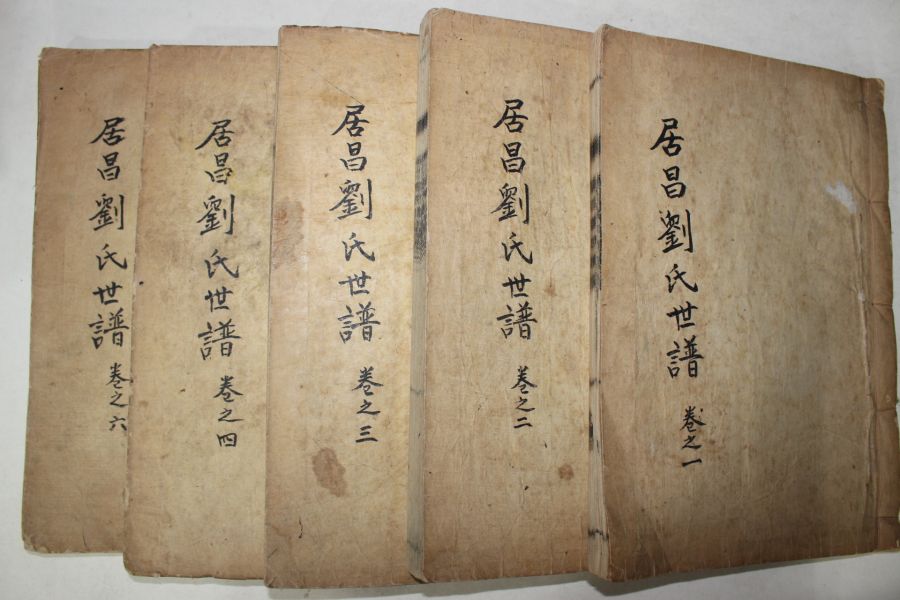 居昌劉氏世譜 卷之一
居昌劉氏世譜 卷之二
居昌劉氏世譜 卷之三
居昌劉氏世譜 卷之四
居昌劉氏世譜 卷之六